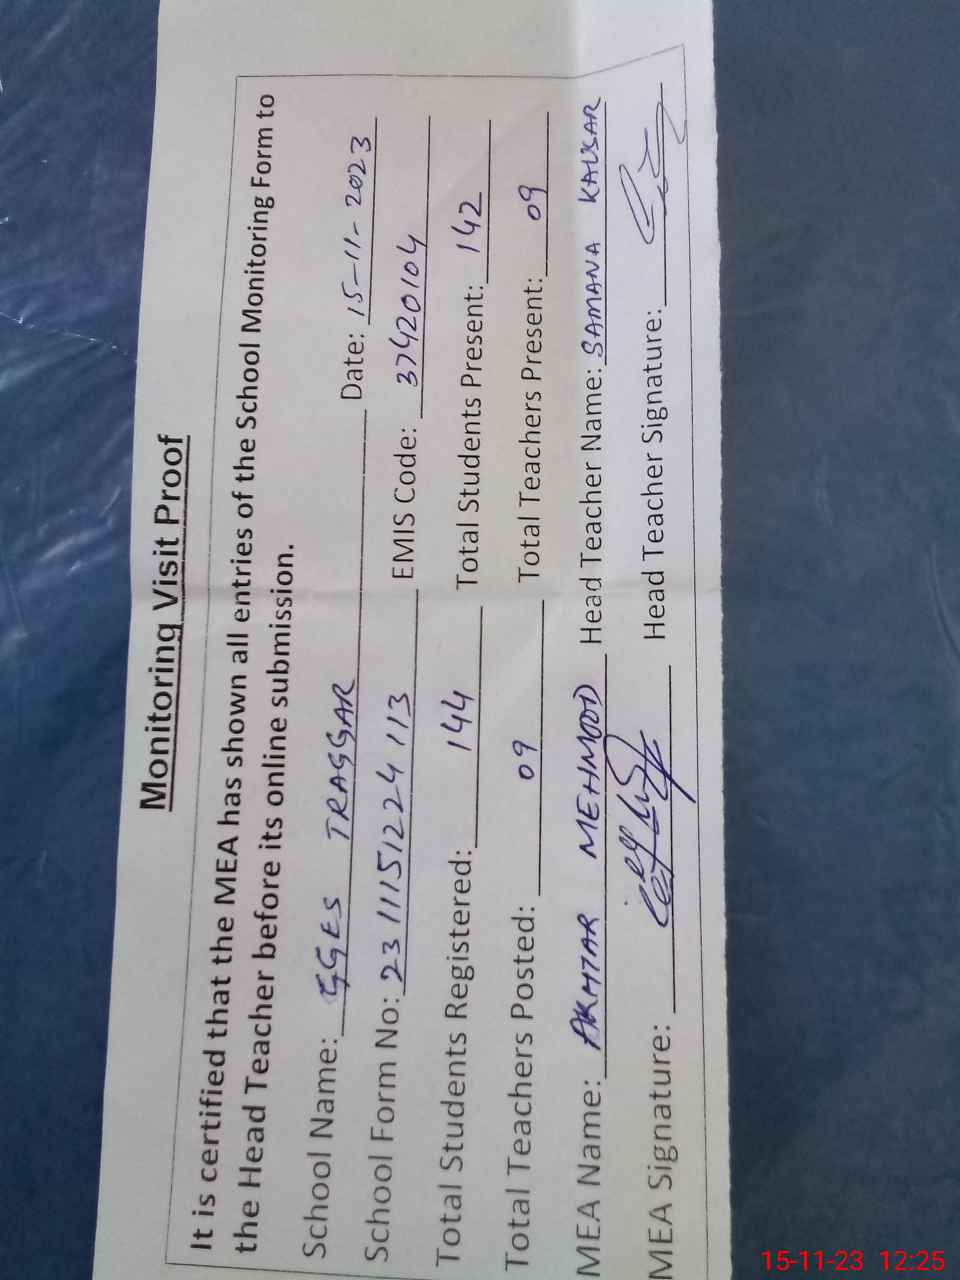 Monitoring Visit Proof
It is certified that the MEA has shown all entries of the School Monitoring Form to
the Head Teacher before its online submission.
School Name: GGES TRAGGAR Date: 15-11-2023
School Form No: 23 11151224 113 EMIS Code: 37420104
Total Students Registered: 144 Total Students Present: 142
Total Teachers Posted: 09 Total Teachers Present: 09
MEA Name: AKHTAR MEHMOOD Head Teacher Name: SAMANA KAUSAR
MEA Signature: Head Teacher Signature:
15-11-23 12:25